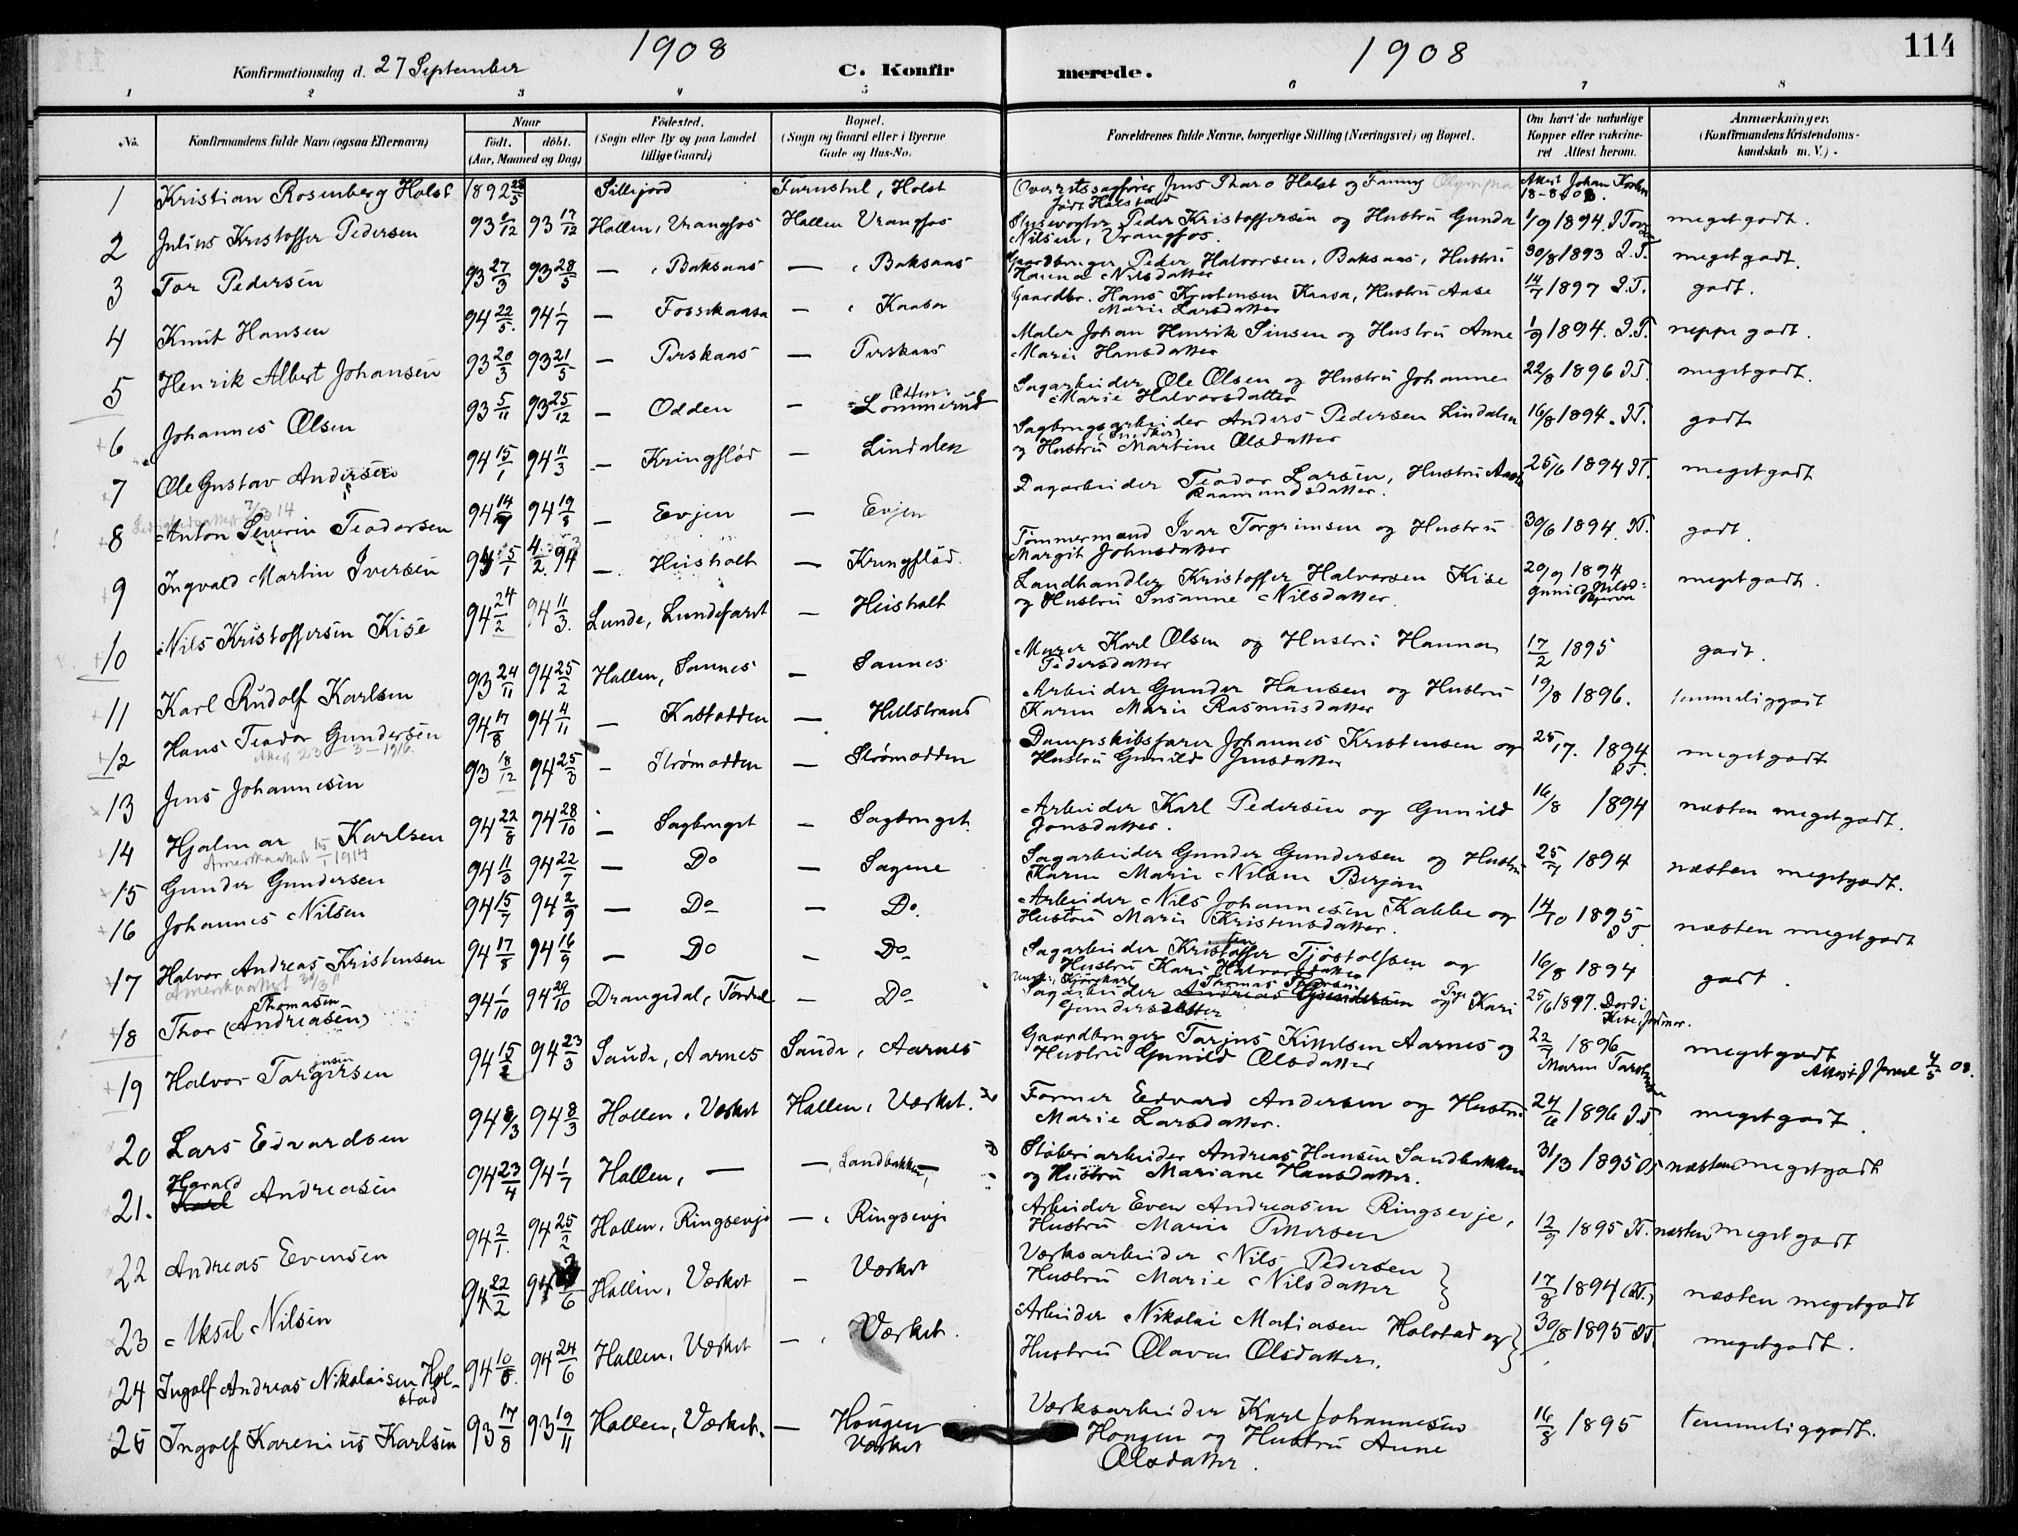 1908
1908
114
Konfirmationsdag d. 27 September
C. Konfirmerede.
1 2 3 4 5 6 7 8
No.
Konfirmandens fulde Navn (ogsaa Efternavn)
Naar
født. døbt.
(Aar, Maaned og Dag)
Fødested.
(Sogn eller By og paa Landet
tillige Gaard)
Bopæl.
(Sogn og Gaard eller i Byerne
Gade og Hus-No.
Forældrenes fulde Navne, borgerlige Stilling (Næringsvei) og Bopæl.
Om havt de naturlige
Kopper eller vakcine-
ret Attest herom.
Anmærkninger.
(Konfirmandens Kristendoms-
kundskab m. V.)
1 Kristian Rosenberg Holst 1892 Sillejord Furustul, Holst Overretssagfører Jens Tharo Holst og Fanny Olympia
født Halstad 18-8-08
2 Julius Kristoffer Pedersen 93 1/12 93 17/12 Hollen, Vrangfos Hollen Vrangfos Slusevogter Peder Kristoffersen og Hustru Gunda 1/9 1894 meget godt.
Nilsen, Vrangfos.
3 Tor Pedersen 93 27/3 93 28/5 — , Baksaas — , Baksaas Gaardbruger Peder Halvorsen, Baksaas, Hustru 30/8 1893 I.T. meget godt.
Hanna Nilsdatter
4 Knut Hansen 94 22/5 94 1/7 — Fosskaasa — , Kaasa Gaardbr. Hans Kristensen Kaasa, Hustru Aase 14/7 1897 I.T. godt.
Marie Larsdatter
5 Henrik Albert Johansen 93 20/3 93 21/5 — Perskaas — Perskaas Maler Johan Henrik Simsen og Hustru Anne 1/9 1894. I.T. neppe godt.
Marie Hansdatter
6 Johannes Olsen 93 5/11 93 25/12 — Odden — Lommerud Sagarbeider Ole Olsen og Hustru Johanne 22/8 1896 I.T. meget godt.
Marie Halvorsdatter
7 Ole Gustav Andersen 94 15/1 94 11/3 — Kringflød — Lindalen Sagbrugsarbeider Anders Pedersen Lindalen 16/8 1894. I.T. godt
(Snedker)
og Hustru Martine Olsdatter
8 Anton Severin Teodorsen 94 14/7 94 19/8 — Evjen — Evjen Dagarbeider Teodor Larsen, Hustru Aase 25/6 1894 I.T. meget godt
Raamundsdatter.
9 Ingvald Martin Iversen 94 5/1 4/2 94 — Heisholt — Kringflød Tømmermand Ivar Torgrimsen og Hustru 30/6 1894. I.T. godt.
Margit Johnsdatter
10 Nils Kristoffersen Kise 94 24/2 94 11/3. Lunde, Lundefaret — Heisholt Landhandler Kristoffer Halvorsen Kise 20/9 1894 meget godt.
og Hustru Susanne Nilsdatter.
11 Karl Rudolf Karlsen 93 24/11 94 25/2 Hollen, Sannes — Sannes Murer Karl Olsen og Hustru Hanna 17/2 1895 godt.
Pedersdatter
12 Hans Teodor Gundersen 94 17/8 94 4/11 — Kastodden — Hellstrand Arbeider Gunder Hansen og Hustru 19/8 1896. temmelig godt
Attest 23-3-1916.
Karen Marie Rasmusdatter
13 Jens Johannesen 93 18/12 94 25/3 — Strømodden — Strømodden Dampskibsfører Johannes Kristensen og 25/7. 1894 I.T. meget godt
Hustru Gunild Jensdatter
14 Hjalmar Karlsen 94 22/8 94 28/10 — Sagbruget — Sagbruget. Arbeider Karl Pedersen og Gunild 16/8 1894 næsten meget godt.
Amerikaattest 15/1 1914
Jonsdatter.
15 Gunder Gundersen 94 11/3 94 22/7 — Do — Sagene Sagarbeider Gunder Gundersen og Hustru 25/7 1894 næsten meget godt.
Karen Marie Nilsen Berjan
16 Johannes Nilsen 94 15/7 94 2/9 — Do — Do. Arbeider Nils Johannesen Kabbe og 14/10 1895 næsten meget godt
Hustru Marie Kristensdatter.
17 Halvor Andreas Kristensen 94 17/8 94 16/9 — Do — Do Sagarbeider Kristoffer Tjøstolfsen og 16/8 1894 godt.
Hustru Kari Halvorsdatter
18 Thor (Andreasen) Thomasen 94 1/10 94 29/10 Drangedal, Tørdal — Do Sagarbeider Andreas Gundersen og Kari 25/6 1897.
Gundersdatter
19 Halvor Targersen 94 15/2 94 23/3 Saude, Aarnes Saude, Aarnes Gaardbruger Tarjus Kittelsen Aarnes og 22/7 1896 meget godt
Hustru Gunild Olsdatter
20 Lars Edvardsen 94 8/3 94 8/3 Hollen, Værket Hollen, Værket. Former Edvard Andersen og Hustru 24/6 1896 I.T. meget godt.
Marie Larsdatter.
21. Harald Karl Andreasen 94 23/4 94 1/7 Hollen, — — Sandbakken Støberiarbeider Andreas Hansen Sandbakken 31/3 1895 næsten meget godt
og Hustru Mariane Hansdatter.
22 Andreas Evensen 94 2/1. 94 25/2 Hollen, Ringsevje — , Ringsevje Arbeider Even Andreasen Ringsevje, 12/9 1895 I.T. næsten meget godt
Hustru Marie Pettersen
23 Aksel Nilsen 94 22/2 94 Hollen, Værket — Værket Værksarbeider Nils Pedersen 17/8 1894 (I.T.) næsten meget godt
Hustru Marie Nilsdatter
24 Ingolf Andreas Nikolaisen Hol- 94 10/5. 94 24/6 Hollen, Værket — , Værket. Arbeider Nikolai Matiasen Holstad og 30/8 1895 I.T. meget godt.
stad
Hustru Olava Olsdatter.
25 Ingolf Karenius Karlsen 93 17/8 93 19/11 Hollen, Værket. — Hougen Værksarbeider Karl Johannesen 16/8 1895 temmelig godt.
Værket
Hougen og Hustru Anne
Olsdatter.